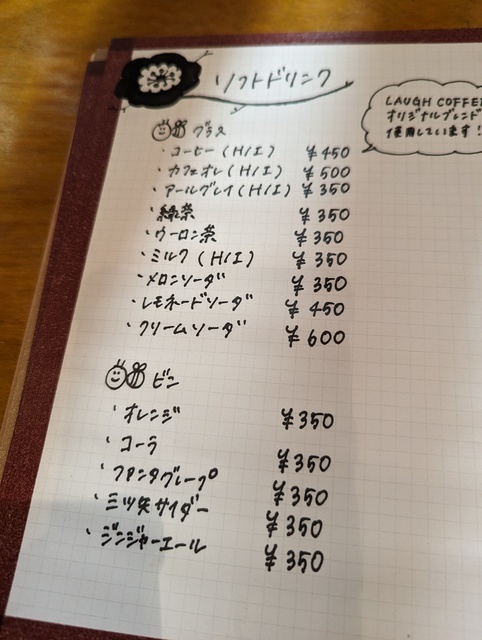 ソフトドリンク
LAUGH COFFEE
オリジナルブレンド
使用しています!
グラス
・コーヒー (H/I) ¥450
・カフェオレ (H/I) ¥500
・アールグレイ (H/I) ¥350
・緑茶 ¥350
・ウーロン茶 ¥350
・ミルク (H/I) ¥350
・メロンソーダ ¥350
・レモネードソーダ ¥450
・クリームソーダ ¥600
ビン
・オレンジ ¥350
・コーラ ¥350
・ファンタグレープ ¥350
・三ツ矢サイダー ¥350
・ジンジャーエール ¥350